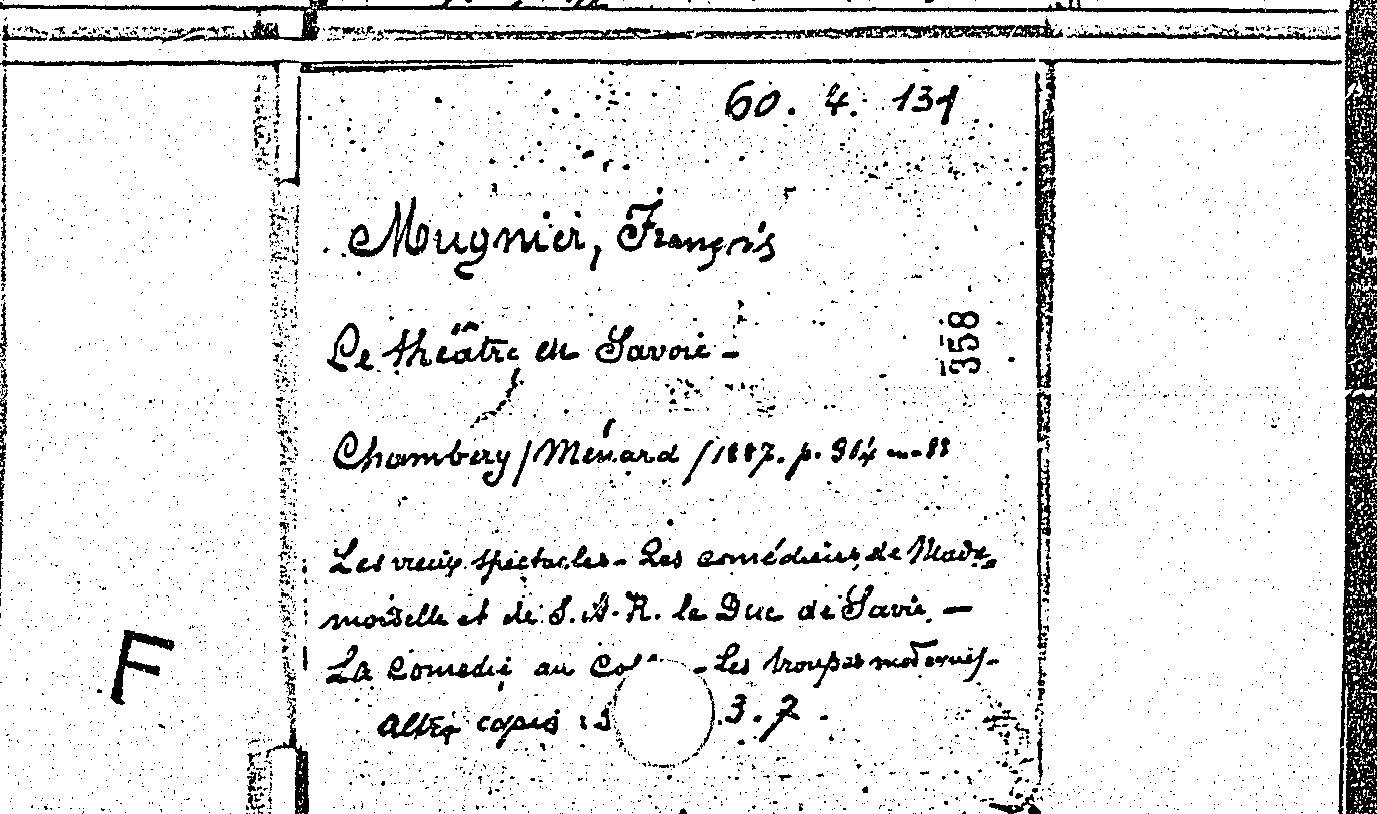 60. 4. 131
Mugnier, François
Le théâtre en Savoie -
358
Chambery / Ménard / 1887. p. 314 in-88
Les vieux spectacles - Les comédiens de Made-
moiselle et de S. A. R. le Duc de Savoie. —
La comedie au - Les troupes modernes -
F
Altra copia : 3. 7.